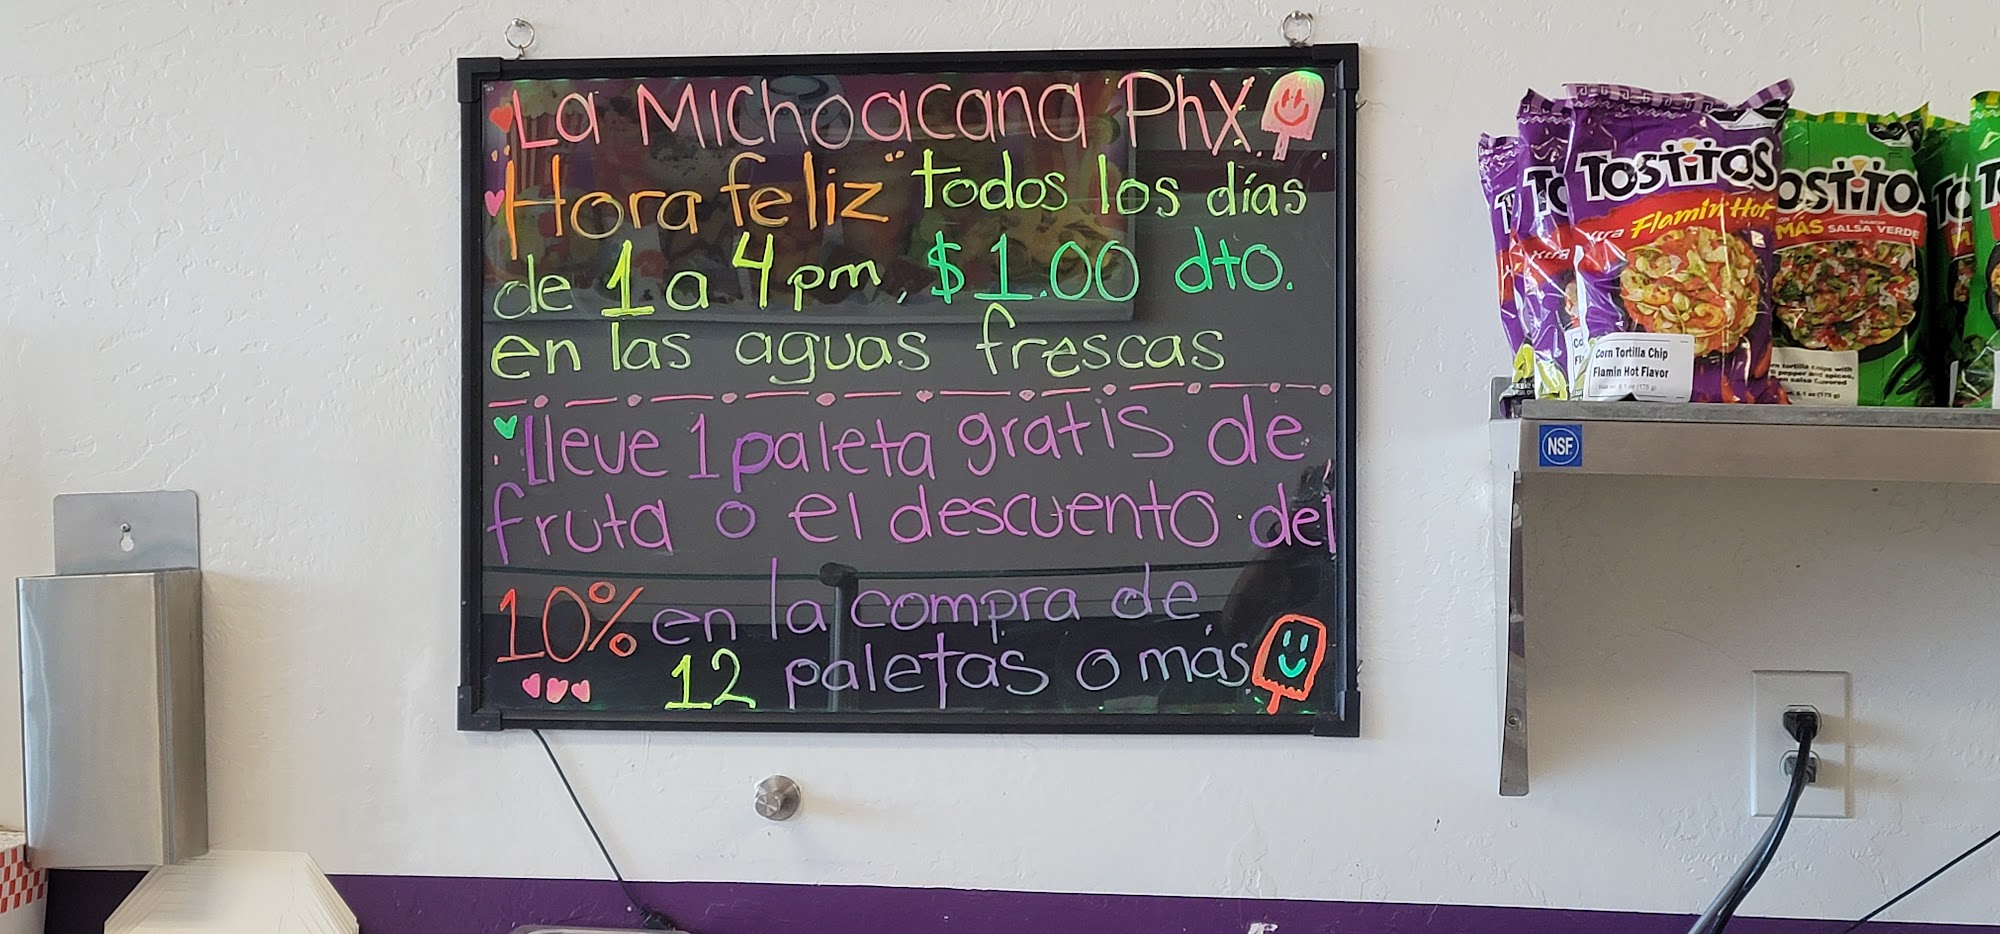 La Michoacana Phx
"Hora feliz" todos los días
de 1 a 4 pm, $1.00 dto.
en las aguas frescas
Lleve 1 paleta gratis de
fruta o el descuento del
10% en la compra de
12 paletas o más.
TOSTITOS
Xtra Flamin' Hot
Corn Tortilla Chip
Flamin Hot Flavor
OSTITO
MÁS SALSA VERDE
NSF